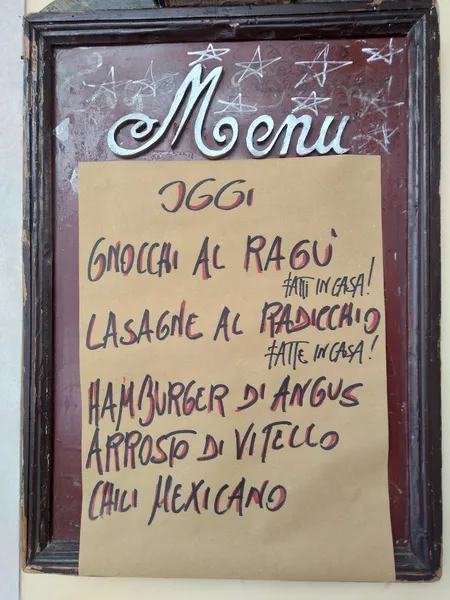 Menu
OGGI
GNOCCHI AL RAGU'
FATTI IN CASA!
LASAGNE AL RADICCHIO
FATTE IN CASA!
HAMBURGER DI ANGUS
ARROSTO DI VITELLO
CHILI MEXICANO